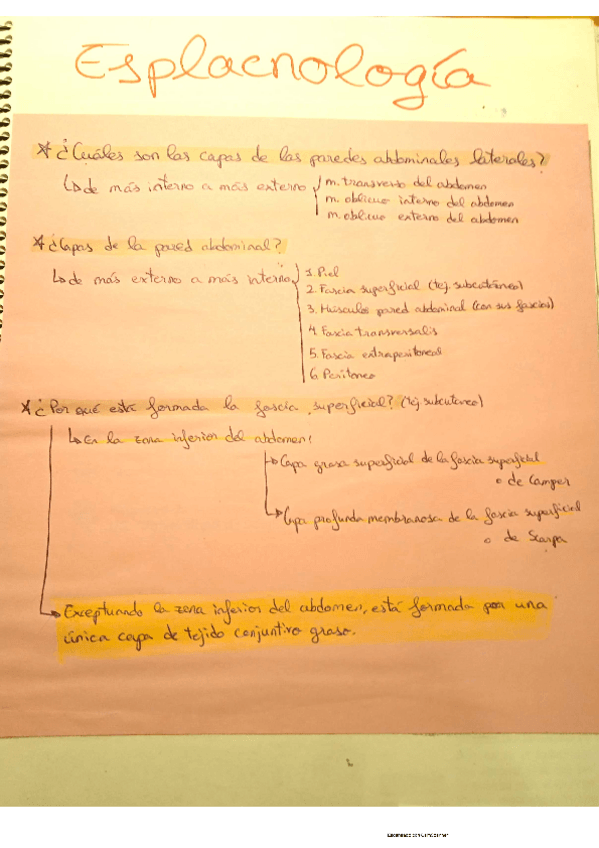 Esplacnología
* ¿Cuáles son las capas de las paredes abdominales laterales?
↳ de más interno a más externo
m. transverso del abdomen
m. oblicuo interno del abdomen
m. oblicuo externo del abdomen
* ¿Capas de la pared abdominal?
↳ de más externo a más interno
1. Piel
2. Fascia superficial (tej. subcutáneo)
3. Músculos pared abdominal (con sus fascias)
4. Fascia transversalis
5. Fascia extraperitoneal
6. Peritoneo
* ¿Por qué está formada la fascia superficial? (tej subcutaneo)
↳ En la zona inferior del abdomen:
↳ Capa grasa superficial de la fascia superficial
o de Camper
↳ Capa profunda membranosa de la fascia superficial
o de Scarpa
→ Exceptuando la zona inferior del abdomen, está formada por una
única capa de tejido conjuntivo graso.
Escaneado con CamScanner